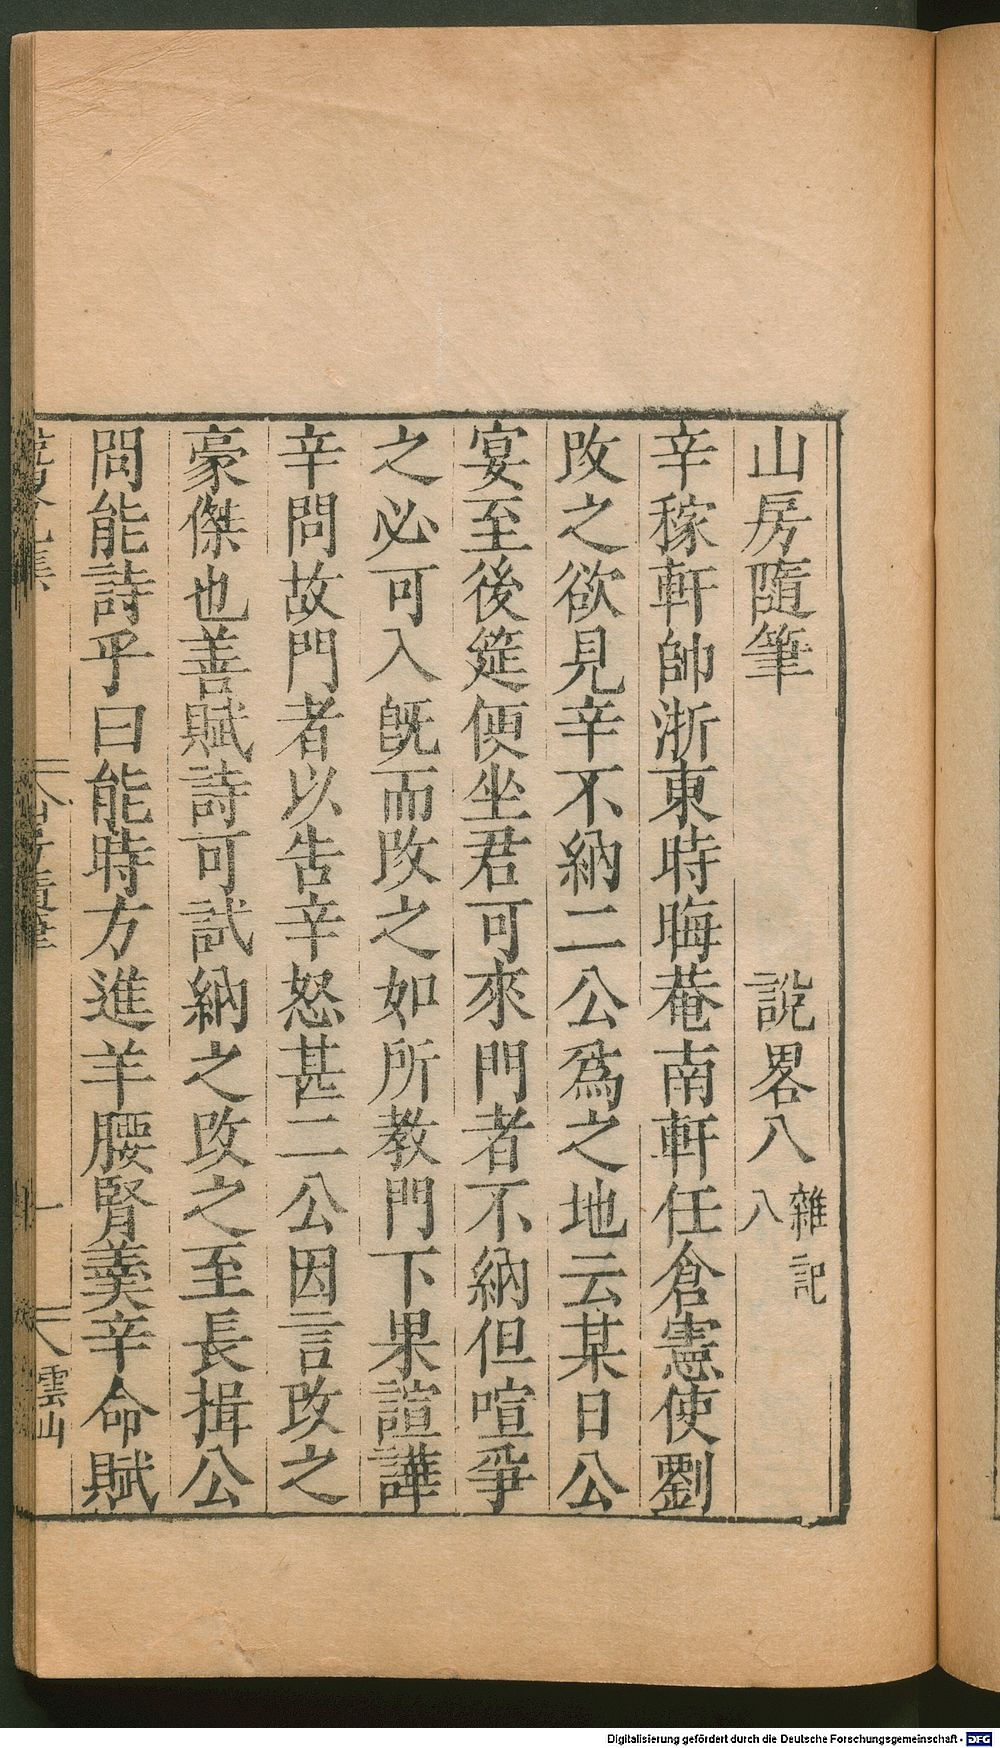 山房隨筆 說畧八 雜記八
辛稼軒帥浙東時晦菴南軒任倉憲使劉
改之欲見辛不納二公爲之地云某日公
宴至後筵便坐君可來門者不納但喧爭
之必可入旣而改之如所教門下果諠譁
辛問故門者以告辛怒甚二公因言改之
豪傑也善賦詩可試納之改之至長揖公
問能詩乎曰能時方進羊腰腎羹辛命賦
一 雲山
Digitalisierung gefördert durch die Deutsche Forschungsgemeinschaft - DFG